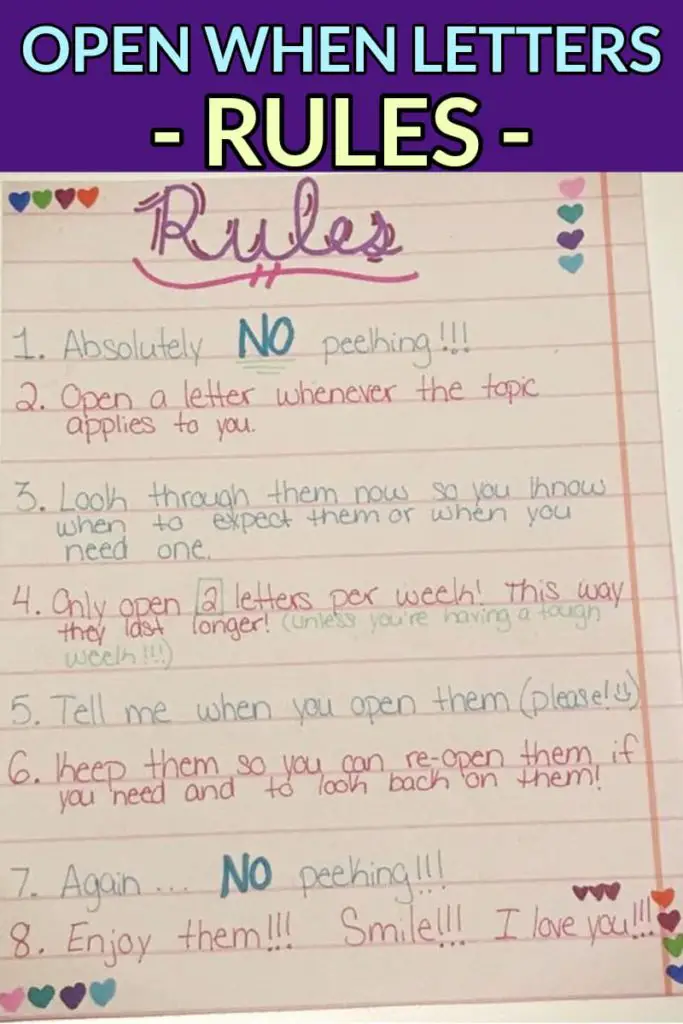 OPEN WHEN LETTERS
- RULES -
Rules
1. Absolutely NO peeking!!!
2. Open a letter whenever the topic
applies to you.
3. Look through them now so you know
when to expect them or when you
need one.
4. Only open 2 letters per week! This way
they last longer! (unless you're having a tough
week!!!)
5. Tell me when you open them (please! :))
6. Keep them so you can re-open them if
you need and to look back on them!
7. Again... NO peeking!!!
8. Enjoy them!!! Smile!!! I love you!!!